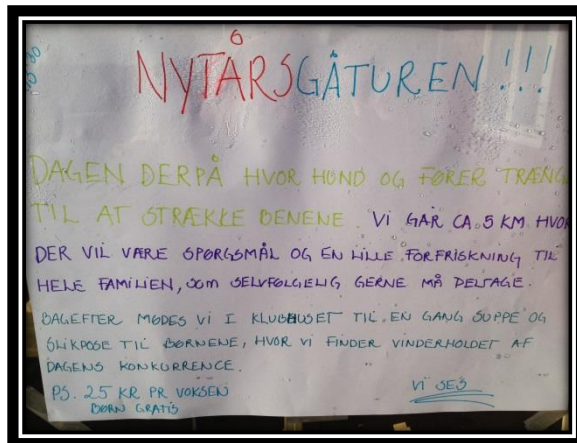 NYTÅRSGÅTUREN!!!
DAGEN DERPÅ HVOR HUND OG FØRER TRÆNG
TIL AT STRÆKKE BENENE. VI GÅR CA. 5 KM HVOR
DER VIL VÆRE SPØRGSMÅL OG EN LILLE FORFRISKNING TIL
HELE FAMILIEN, SOM SELVFØLGELIG GERNE MÅ DELTAGE.
BAGEFTER MØDES VI I KLUBHUSET TIL EN GANG SUPPE OG
SLIKPOSE TIL BØRNENE, HVOR VI FINDER VINDERHOLDET AF
DAGENS KONKURRENCE.
PS. 25 KR PR VOKSEN
BØRN GRATIS
VI SES